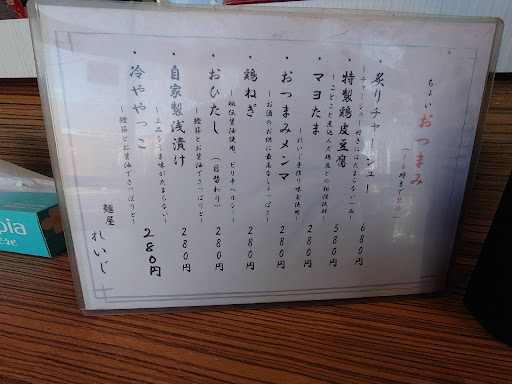 ちょいおつまみ
・炙りチャーシュー 680円
～チャーシュー好きにはたまらない一品～
・特製鶏皮豆腐 580円
～とことこと煮込んだ鶏皮との相性抜群～
・マヨたま 280円
～れいじ手作り味玉使用～
・おつまみメンマ 280円
～お酒のお供に最高なしょっぱさ～
・鶏ねぎ 280円
～秘伝醤油使用、ピリ辛ヘルシー～
・おひたし (日替わり) 280円
～鰹節とお醤油でさっぱりと～
・自家製浅漬け 280円
～上品なうま味がたまらない～
・冷ややっこ 280円
～鰹節とお醤油でさっぱりと～
麺屋 れいじ
pia